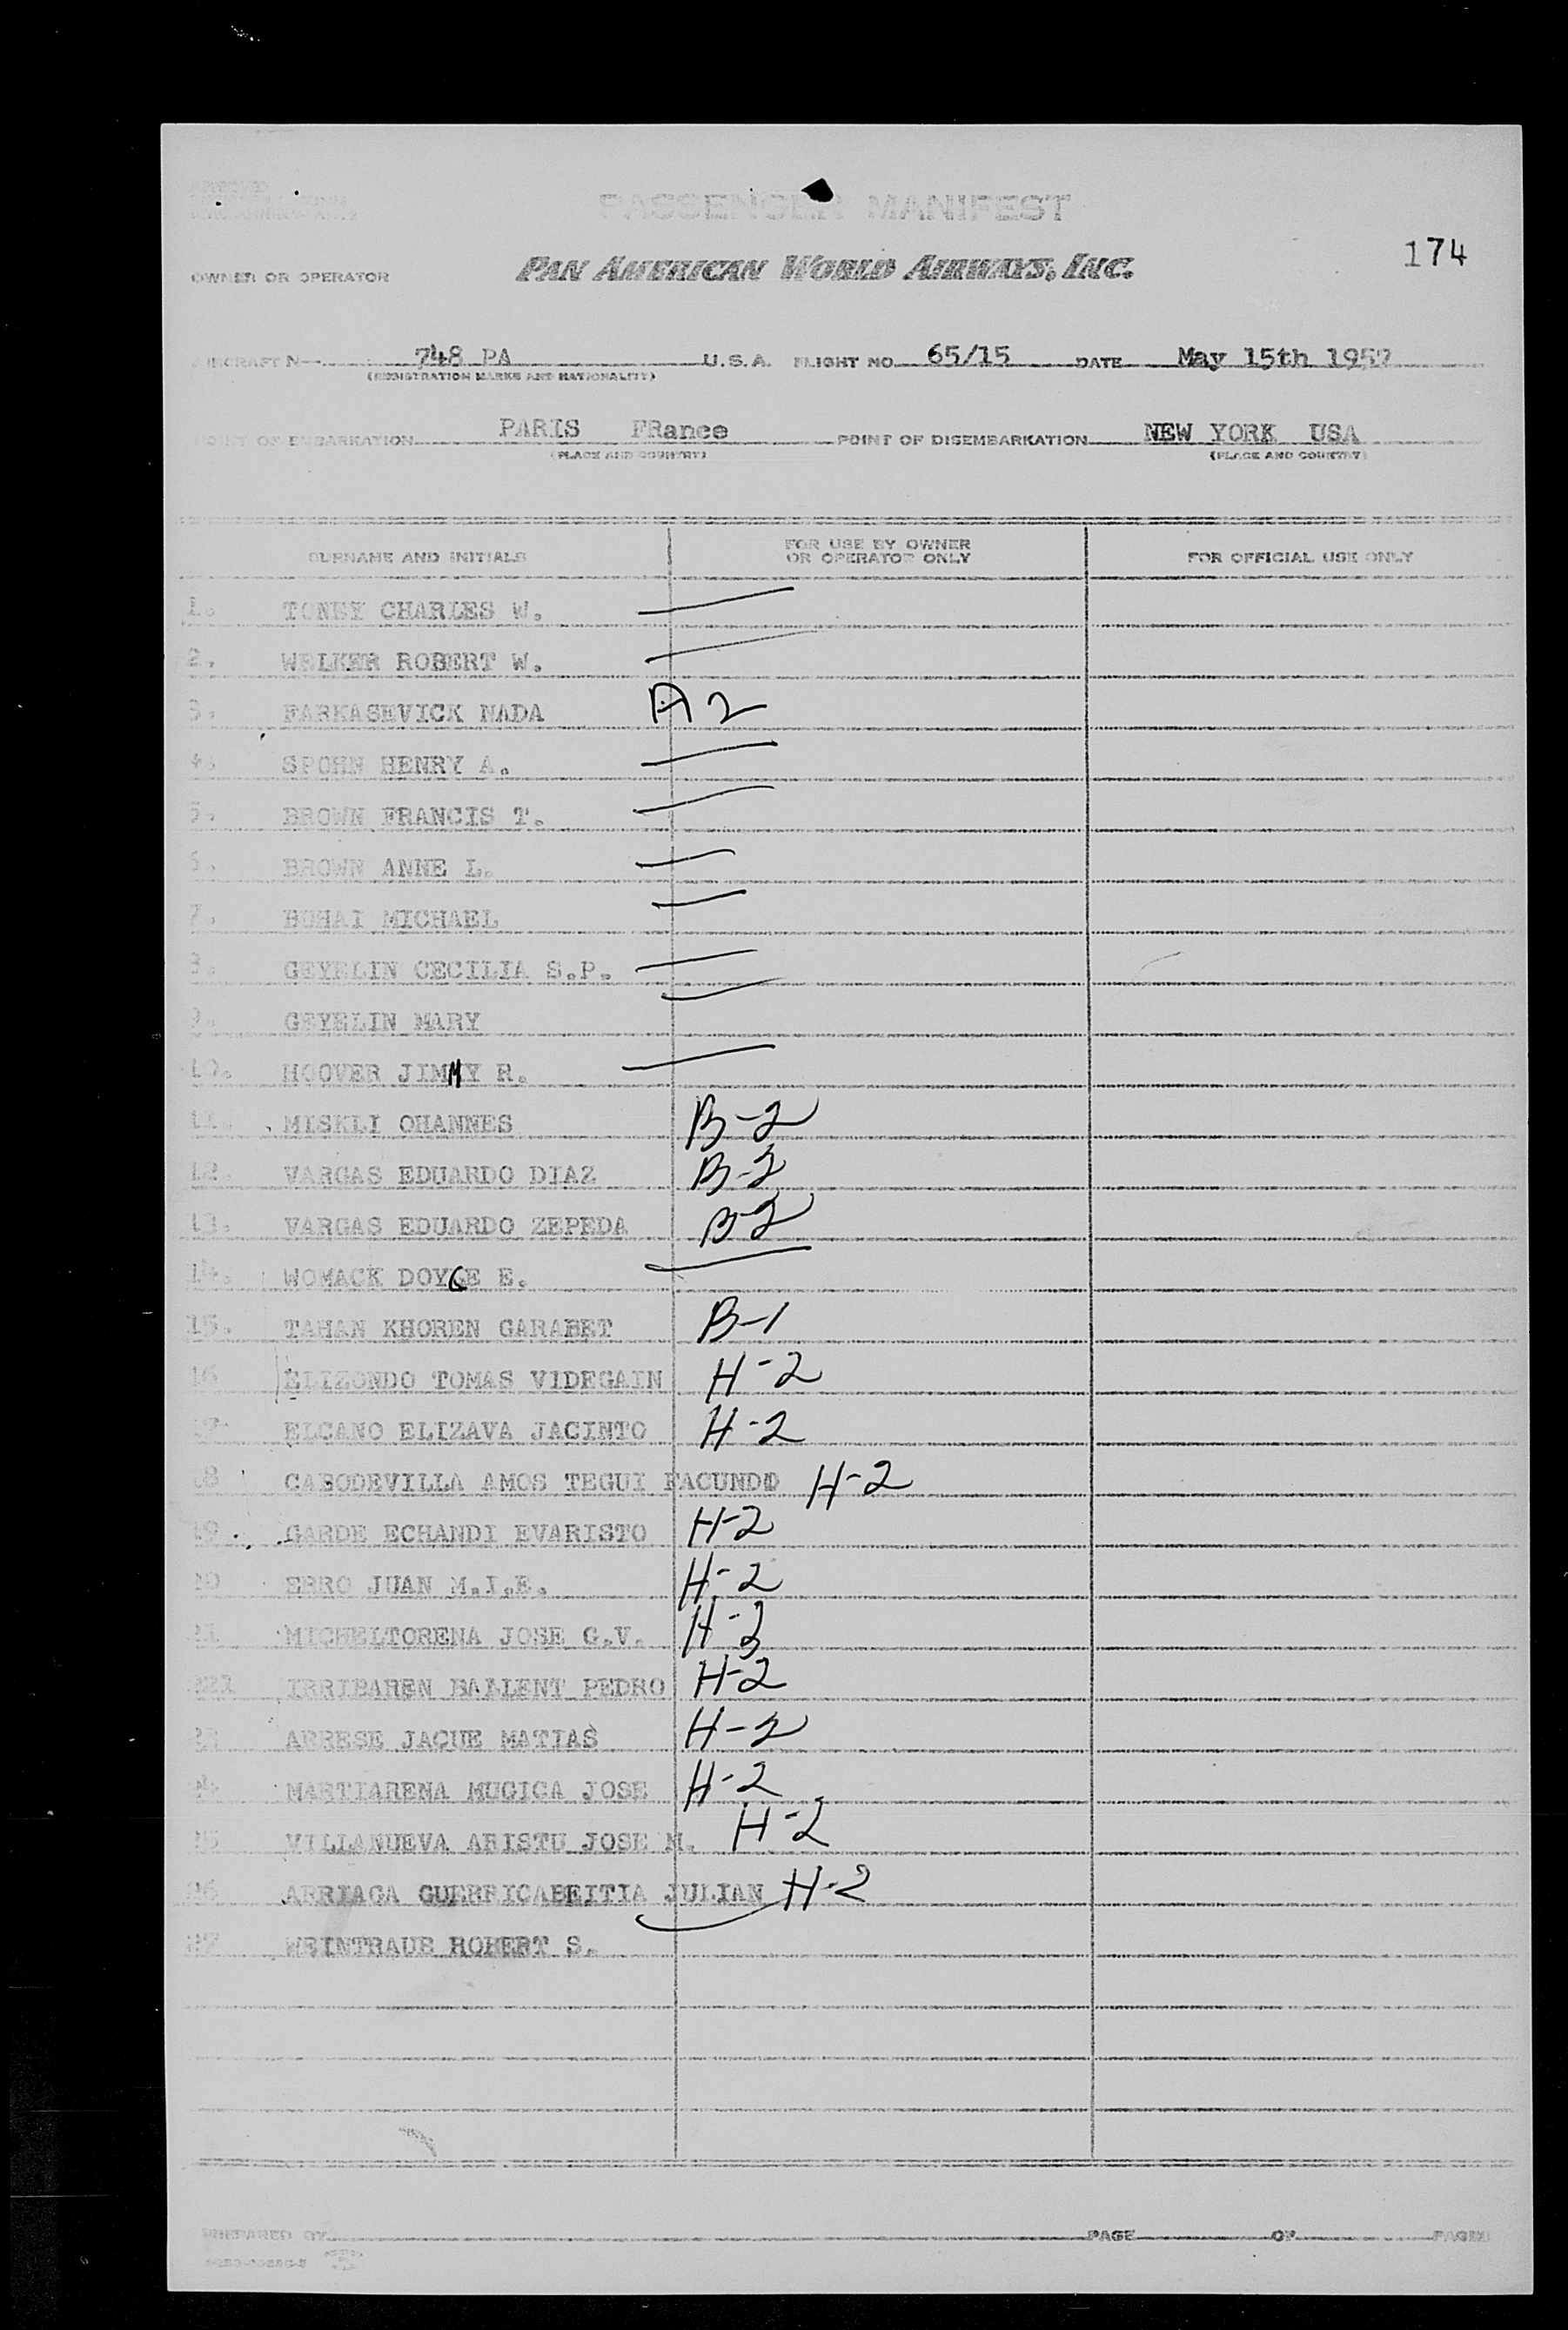 PASSENGER MANIFEST
174
OWNER OR OPERATOR PAN AMERICAN WORLD AIRWAYS, INC.
AIRCRAFT N 748 PA U.S.A. FLIGHT NO. 65/15 DATE May 15th 1957
(REGISTRATION MARKS AND NATIONALITY)
POINT OF EMBARKATION PARIS FRance POINT OF DISEMBARKATION NEW YORK USA
(PLACE AND COUNTRY) (PLACE AND COUNTRY)
SURNAME AND INITIALS FOR USE BY OWNER OR OPERATOR ONLY FOR OFFICIAL USE ONLY
1. TONEY CHARLES W.
2. WELKER ROBERT W.
3. FARKASEVICK NADA A2
4. SPOHN HENRY A.
5. BROWN FRANCIS T.
6. BROWN ANNE L.
7. BOHAI MICHAEL
8. GEYELIN CECILIA S.P.
9. GEYELIN MARY
10. HOOVER JIMMY R.
11. MISKLI OHANNES B-2
12. VARGAS EDUARDO DIAZ B-2
13. VARGAS EDUARDO ZEPEDA B-2
14. WOMACK DOYCE E.
15. TAHAN KHOREN GARABET B-1
16 ELIZONDO TOMAS VIDEGAIN H-2
17 ELCANO ELIZAVA JACINTO H-2
18 CABODEVILLA AMOS TEGUI FACUNDO H-2
19 GARDE ECHANDI EVARISTO H-2
20 ERRO JUAN M.I.E. H-2
21 MICHELTORENA JOSE G.V. H-2
22 IRRIBAREN BALLENT PEDRO H-2
23 ARRESE JAQUE MATIAS H-2
24 MARTIARENA MUGICA JOSE H-2
25 VILLANUEVA ARISTU JOSE M. H-2
26 ARRIAGA GUERRICABEITIA JULIAN H-2
27 WEINTRAUB ROBERT S.
PREPARED BY PAGE OF PAGES